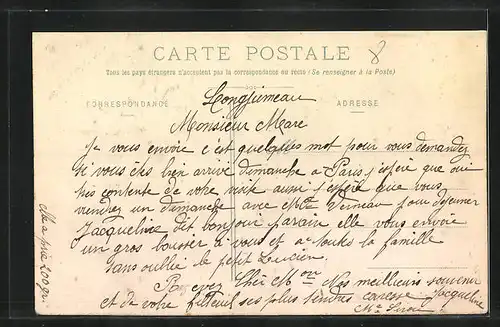 CARTE POSTALE
8
Tous les pays étrangers n'acceptent pas la correspondance au recto (Se renseigner à la Poste)
CORRESPONDANCE
ADRESSE
Longjumeau
Monsieur Marc
Je vous envoie c'est quelques mot pour vous demandez
si vous êtes bien arrivé dimanche a Paris j'espère que oui
très contente de votre visite aussi j'espère que vous
viendrez un dimanche avec Mme pour déjeuner
Jacqueline dit bonjour parain elle vous envoie
un gros a vous et a toute la famille
sans oublié le petit Lucien
Recevez Cher Mon Nos meilleurs souvenir
et de votre filleuil ses plus tendres caresse Jacqueline
Me
Ma pris 200 gr.